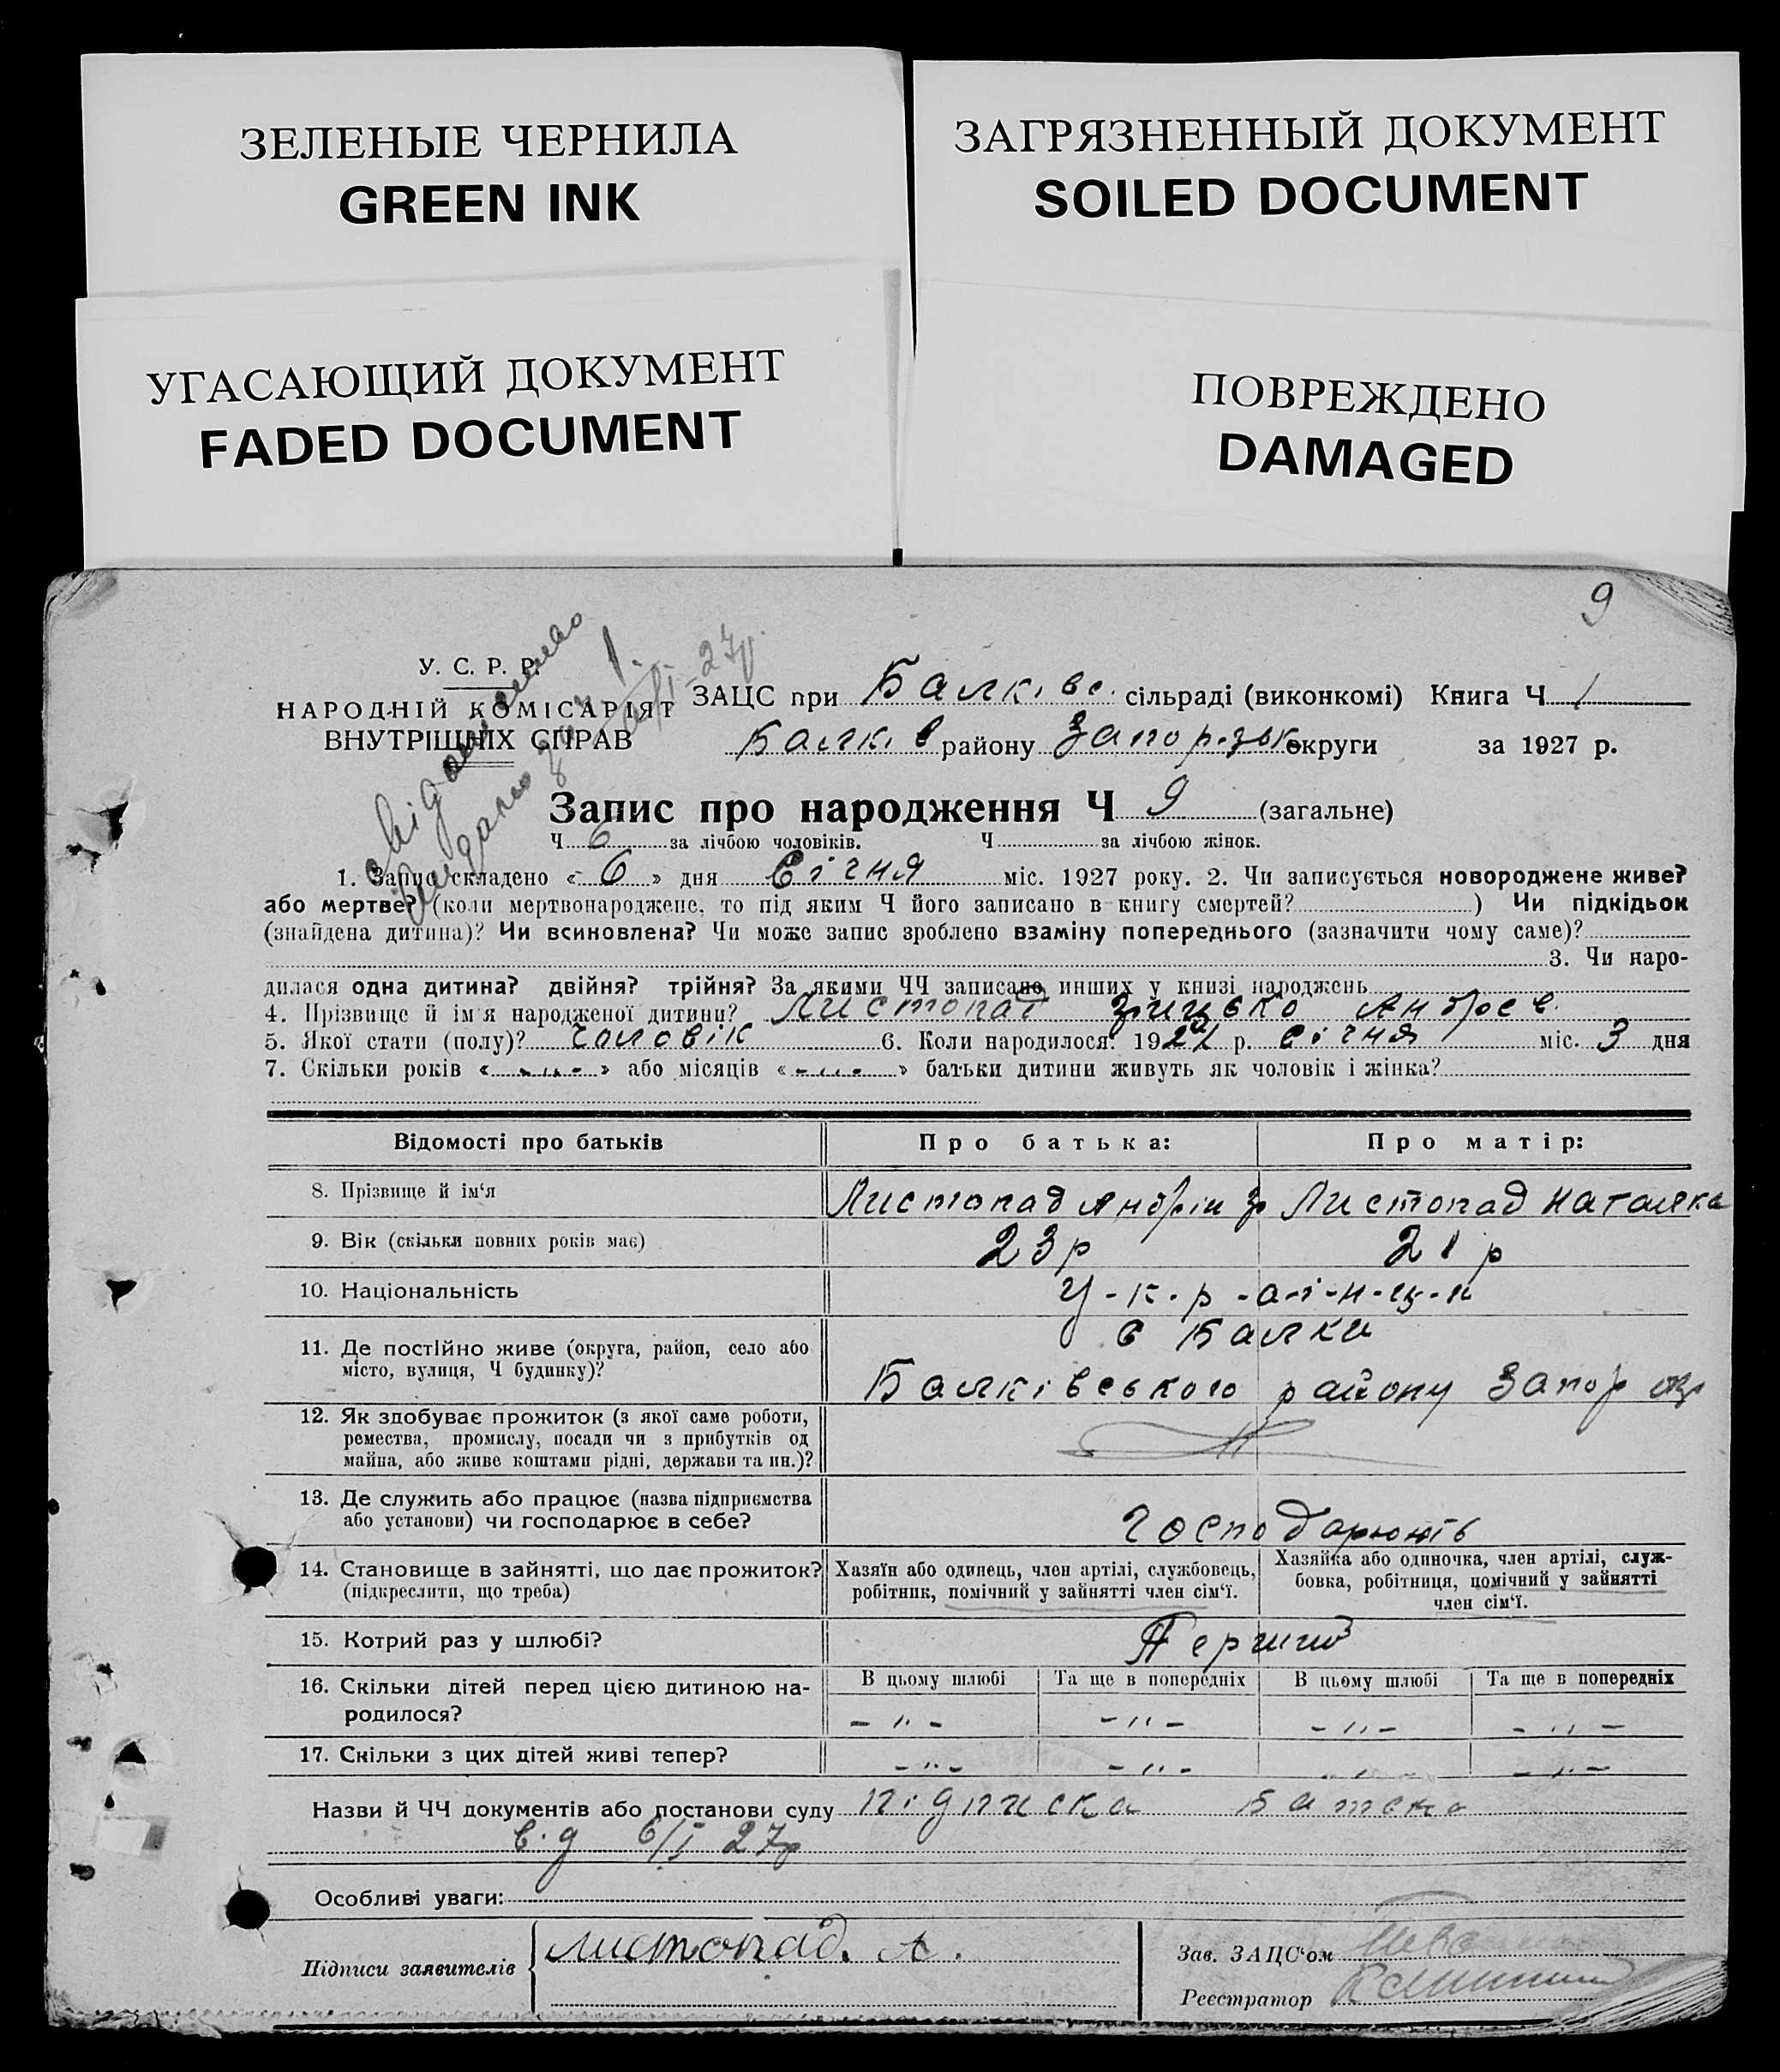 ЗЕЛЕНЫЕ ЧЕРНИЛА
GREEN INK
ЗАГРЯЗНЕННЫЙ ДОКУМЕНТ
SOILED DOCUMENT
УГАСАЮЩИЙ ДОКУМЕНТ
FADED DOCUMENT
ПОВРЕЖДЕНО
DAMAGED
9
У. С. Р. Р.
НАРОДНІЙ КОМІСАРІЯТ
ВНУТРІШНІХ СПРАВ
ЗАЦС при Балківс. сільраді (виконкомі) Книга Ч 1
Балків району Запорізьк округи за 1927 р.
Запис про народження Ч 9 (загальне)
Ч 6 за лічбою чоловіків. Ч за лічбою жінок.
1. Запис складено « 6 » дня Січня міс. 1927 року. 2. Чи записується новороджене живе?
або мертве? (коли мертвонароджене, то під яким Ч його записано в книгу смертей? ) Чи підкідьок
(знайдена дитина)? Чи всиновлена? Чи може запис зроблено взаміну попереднього (зазначити чому саме)?
3. Чи наро-
дилася одна дитина? двійня? трійня? За якими ЧЧ записано инших у книзі народжень
4. Прізвище й ім'я народженої дитини? Листопад Андреев.
5. Якої стати (полу)? чоловік 6. Коли народилося? 1927 р. січня міс. 3 дня
7. Скільки років « -„- » або місяців « -„- » батьки дитини живуть як чоловік і жінка?
Відомості про батьків Про батька: Про матір:
8. Прізвище й ім'я Листопад Андрій Гр Листопад Наталка
9. Вік (скільки повних років має) 23 р 21 р
10. Національність У-к-р-а-і-н-ц-и
11. Де постійно живе (округа, район, село або місто, вулиця, Ч будинку)? с Балки
Балківського району Запор окр
12. Як здобуває прожиток (з якої саме роботи,
ремества, промислу, посади чи з прибутків од
майна, або живе коштами рідні, держави та ин.)?
13. Де служить або працює (назва підприємства
або установи) чи господарює в себе? Господарюють
14. Становище в зайнятті, що дає прожиток?
(підкреслити, що треба)
Хазяїн або одинець, член артілі, службовець,
робітник, помічний у зайнятті член сім'ї.
Хазяйка або одиночка, член артілі, служ-
бовка, робітниця, помічний у зайнятті
член сім'ї.
15. Котрий раз у шлюбі? Перший
16. Скільки дітей перед цією дитиною на-
родилося?
В цьому шлюбі Та ще в попередніх В цьому шлюбі Та ще в попередніх
-„- -„- -„- -„-
17. Скільки з цих дітей живі тепер? -„- -„- -„- -„-
Назви й ЧЧ документів або постанови суду підписка батька
від 6/I 27р
Особливі уваги:
Підписи заявителів Листопад. А.
Зав. ЗАЦС'ом
Реєстратор